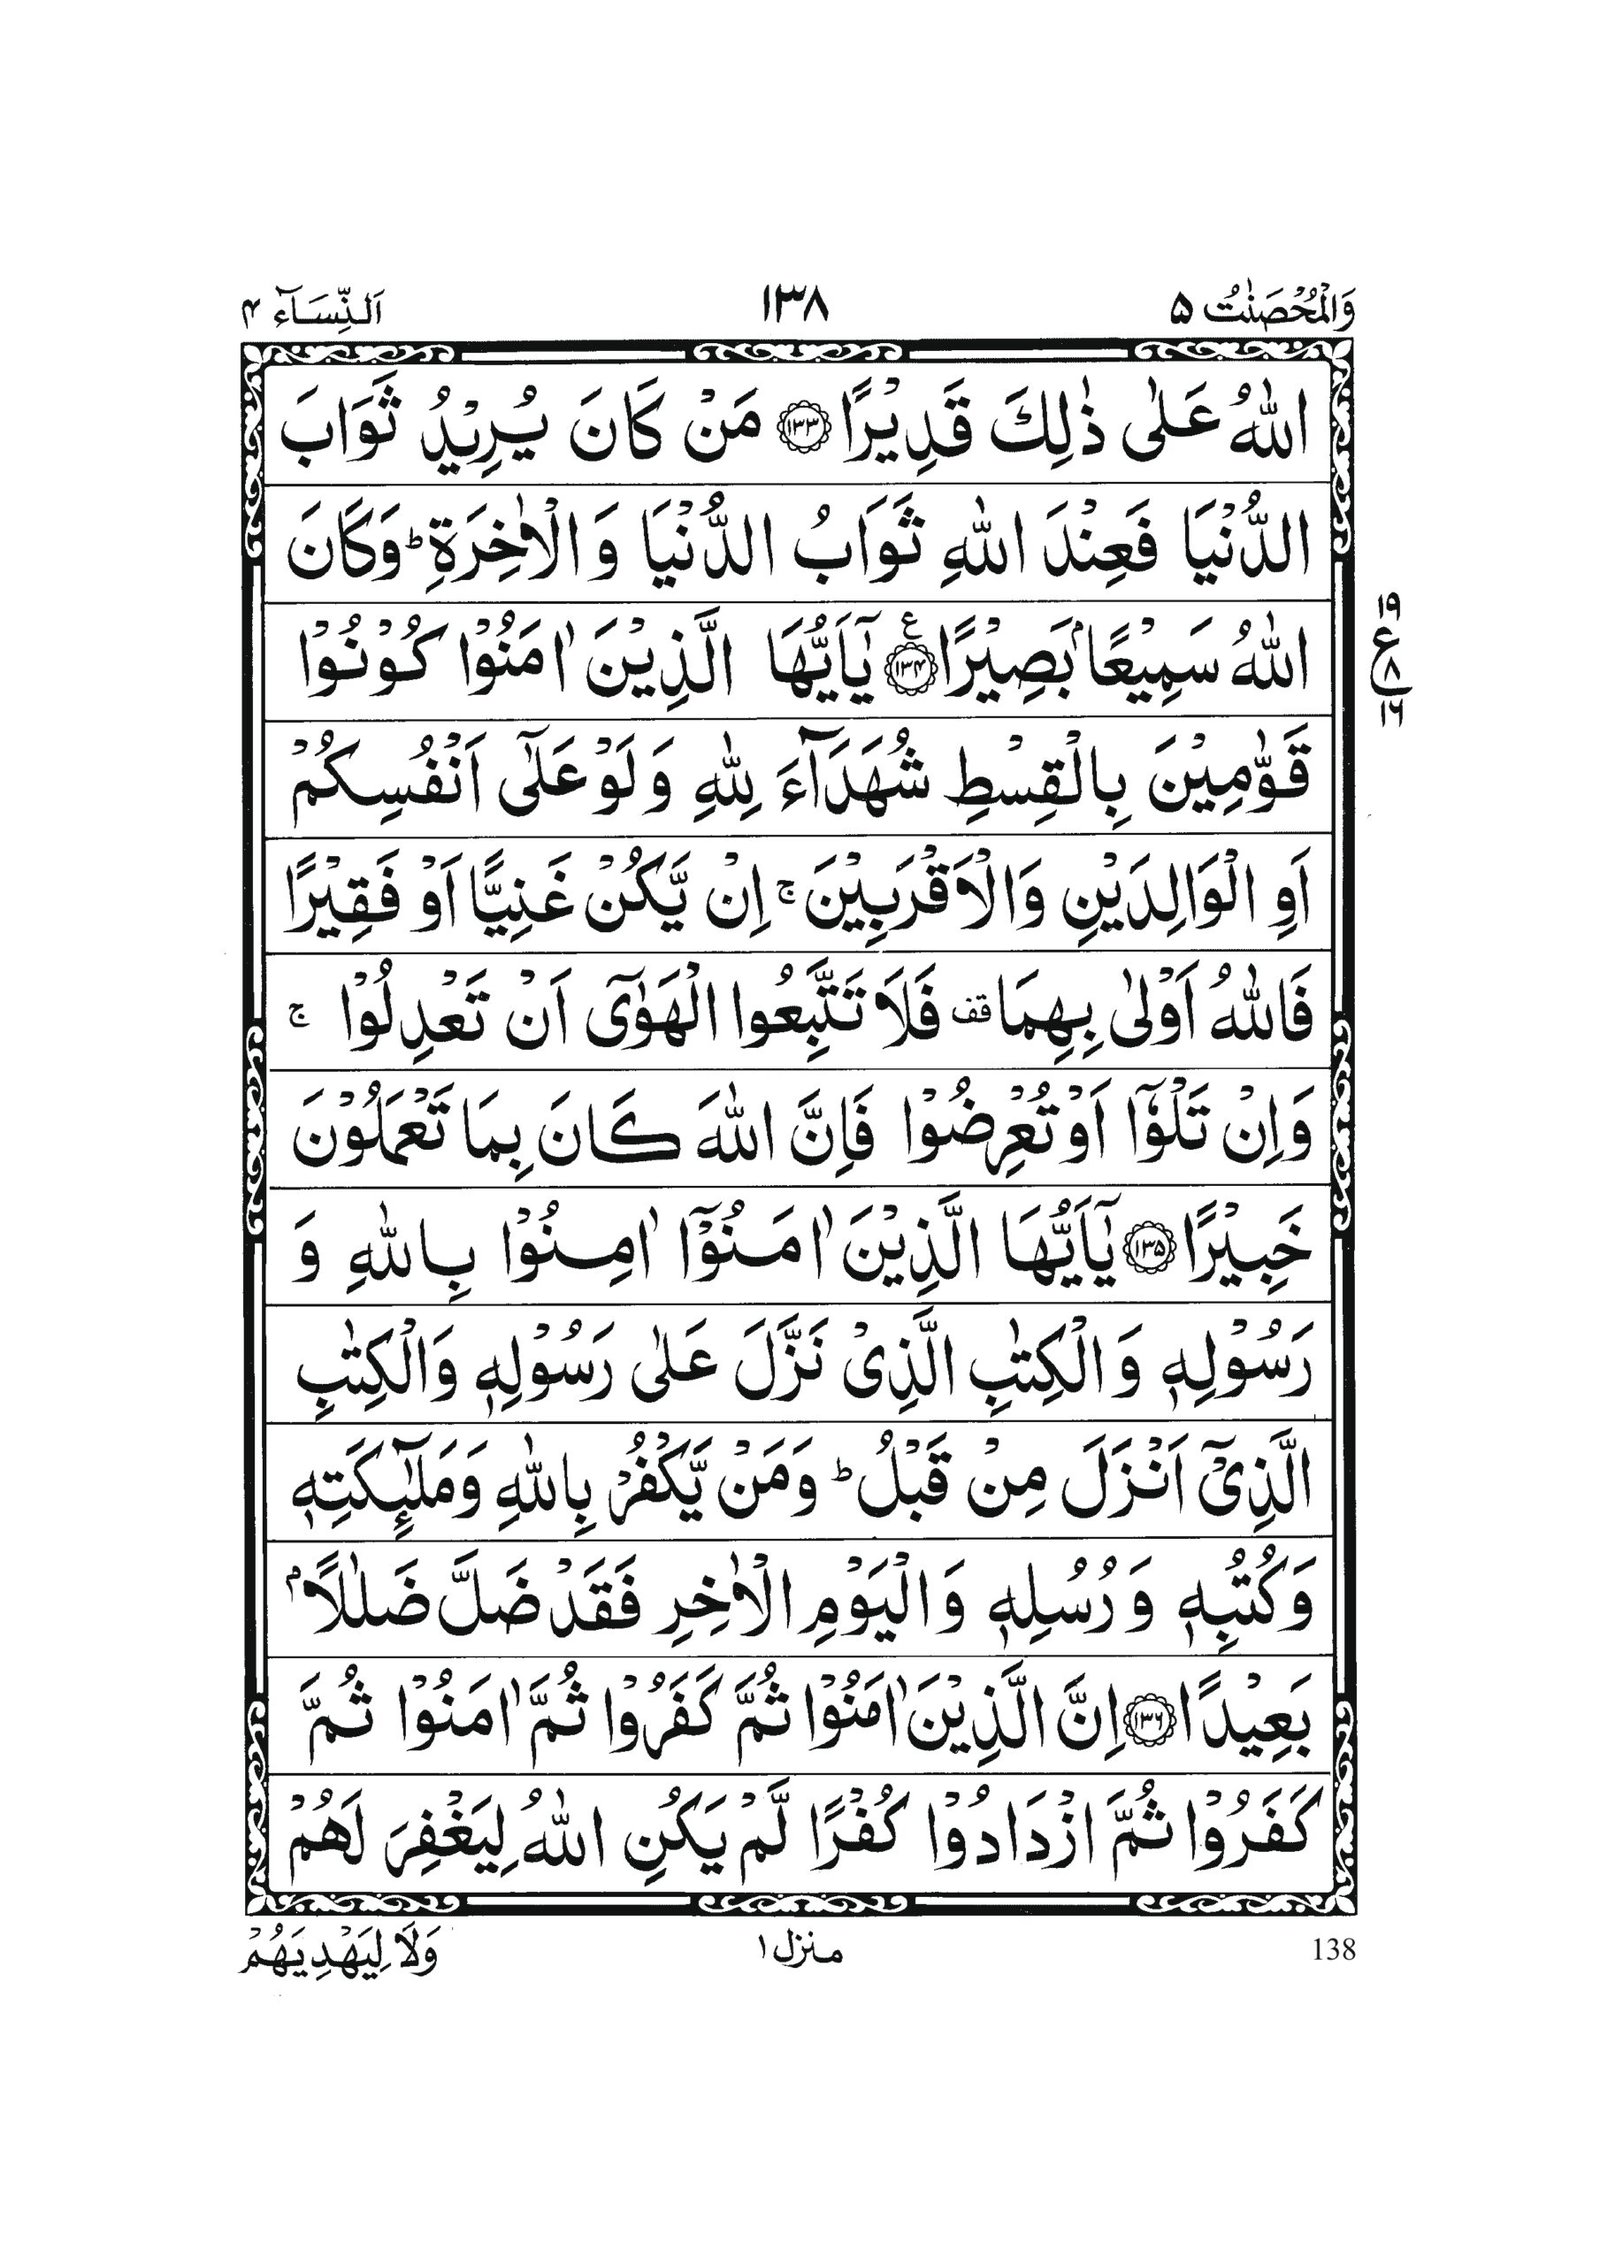 وَالْمُحْصَنٰتُ ۵ ۱۳۸ اَلنِّسَآء ۴
اللّٰهُ عَلٰى ذٰلِكَ قَدِيْرًا ﴿۱۳۳﴾ مَنْ كَانَ يُرِيْدُ ثَوَابَ
الدُّنْيَا فَعِنْدَ اللّٰهِ ثَوَابُ الدُّنْيَا وَ الْاٰخِرَةِ ؕ وَكَانَ
اللّٰهُ سَمِيْعًۢا بَصِيْرًا ﴿۱۳۴﴾ ع يٰۤاَيُّهَا الَّذِيْنَ اٰمَنُوْا كُوْنُوْا
۱۹ ع ۸ ۱۶
قَوّٰمِيْنَ بِالْقِسْطِ شُهَدَآءَ لِلّٰهِ وَ لَوْ عَلٰٓى اَنْفُسِكُمْ
اَوِ الْوَالِدَيْنِ وَالْاَقْرَبِيْنَ ۚ اِنْ يَّكُنْ غَنِيًّا اَوْ فَقِيْرًا
فَاللّٰهُ اَوْلٰى بِهِمَا قف فَلَا تَتَّبِعُوا الْهَوٰٓى اَنْ تَعْدِلُوْا ۚ
وَاِنْ تَلْوٗۤا اَوْ تُعْرِضُوْا فَاِنَّ اللّٰهَ كَانَ بِمَا تَعْمَلُوْنَ
خَبِيْرًا ﴿۱۳۵﴾ يٰۤاَيُّهَا الَّذِيْنَ اٰمَنُوْۤا اٰمِنُوْا بِاللّٰهِ وَ
رَسُوْلِهٖ وَ الْكِتٰبِ الَّذِىْ نَزَّلَ عَلٰى رَسُوْلِهٖ وَالْكِتٰبِ
الَّذِىْۤ اَنْزَلَ مِنْ قَبْلُ ؕ وَمَنْ يَّكْفُرْ بِاللّٰهِ وَمَلٰٓئِكَتِهٖ
وَكُتُبِهٖ وَ رُسُلِهٖ وَ الْيَوْمِ الْاٰخِرِ فَقَدْ ضَلَّ ضَلٰلًاۢ
بَعِيْدًا ﴿۱۳۶﴾ اِنَّ الَّذِيْنَ اٰمَنُوْا ثُمَّ كَفَرُوْا ثُمَّ اٰمَنُوْا ثُمَّ
كَفَرُوْا ثُمَّ ازْدَادُوْا كُفْرًا لَّمْ يَكُنِ اللّٰهُ لِيَغْفِرَ لَهُمْ
138 منزل ۱ وَلَا لِيَهْدِيَهُمْ